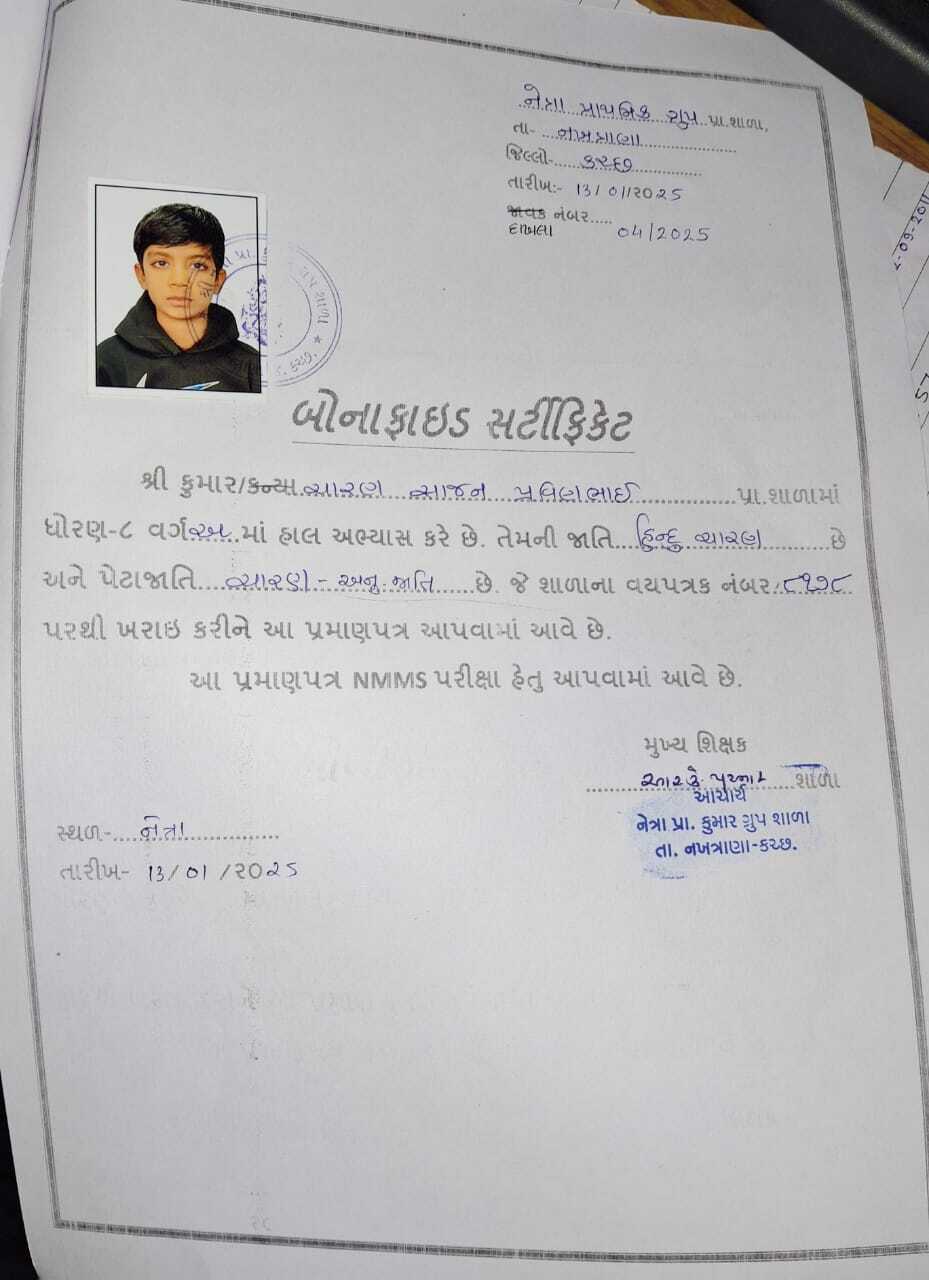 નેત્રા પ્રાથમિક ગ્રુપ પ્રા.શાળા,
તા- નખત્રાણા
જિલ્લો- કચ્છ
તારીખ:- 13/01/2025
જાવક નંબર.....
દાખલા 04/2025
બોનાફાઇડ સર્ટીફિકેટ
શ્રી કુમાર/કન્યા ચારણ સાજન પ્રવિણભાઈ પ્રા.શાળામાં
ધોરણ-૮ વર્ગ અ માં હાલ અભ્યાસ કરે છે. તેમની જાતિ હિન્દુ ચારણ છે
અને પેટાજાતિ ચારણ - અનુ. જાતિ છે. જે શાળાના વયપત્રક નંબર: ૮૧૭૮
પરથી ખરાઇ કરીને આ પ્રમાણપત્ર આપવામાં આવે છે.
આ પ્રમાણપત્ર NMMS પરીક્ષા હેતુ આપવામાં આવે છે.
મુખ્ય શિક્ષક
શાળા
આચાર્ય
નેત્રા પ્રા. કુમાર ગ્રુપ શાળા
તા. નખત્રાણા-કચ્છ.
સ્થળ- નેત્રા
તારીખ- 13/01/2025